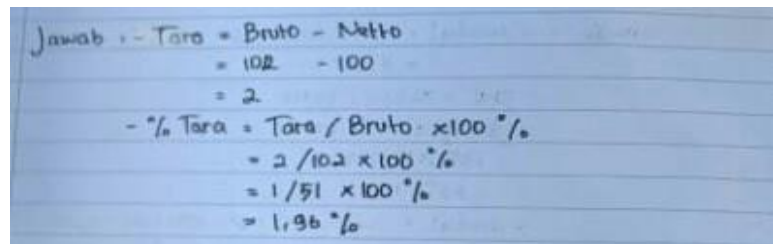 Jawab : - Tara = Bruto - Netto
= 102 - 100
= 2
- % Tara = Tara / Bruto x100 %
= 2/102 x 100 %
= 1/51 x 100 %
= 1,96 %